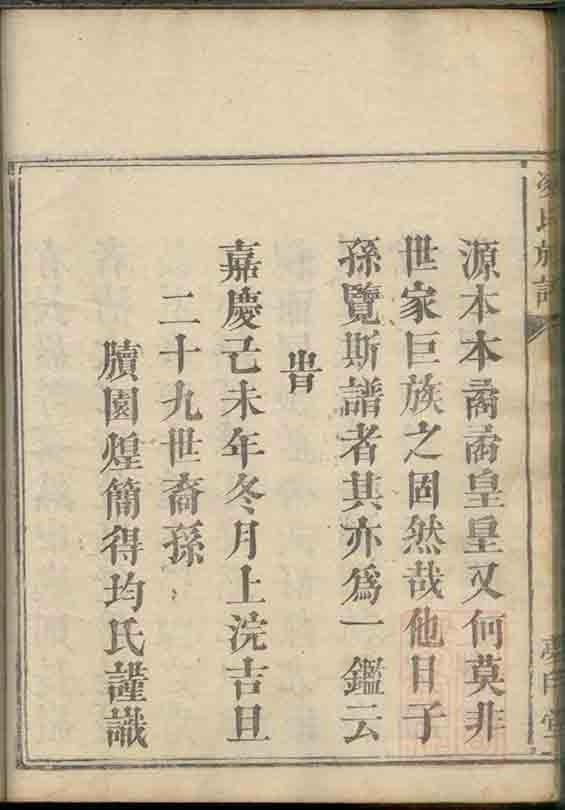 源本本矞矞皇皇又何莫非
世家巨族之固然哉他日子
孫覽斯譜者其亦為一鑑云
旹
嘉慶己未年冬月上浣吉旦
二十九世裔孫
牘園煌簡得均氏謹識
氏族譜